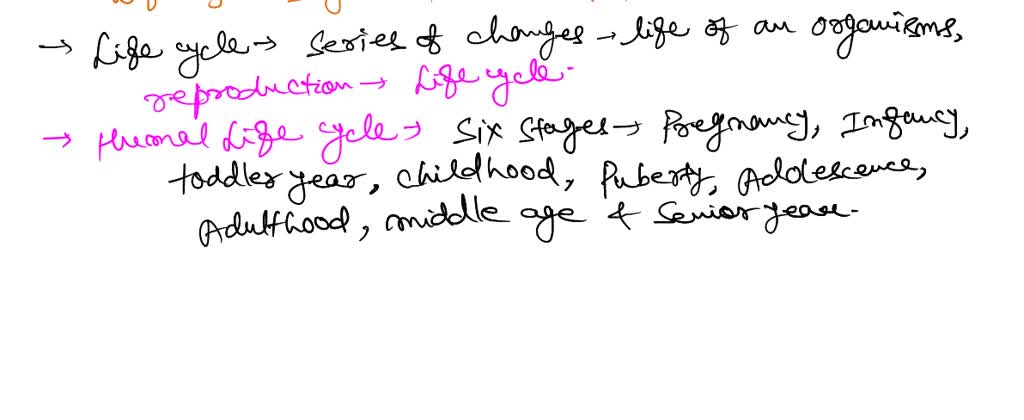 → Life cycle → Series of changes → life of an organisms,
reproduction → Life cycle.
→ Humal Life cycle → Six Stages → Pregnancy, Infancy,
toddler year, childhood, Puberty, Adolescence,
Adulthood, middle age & Senior year.